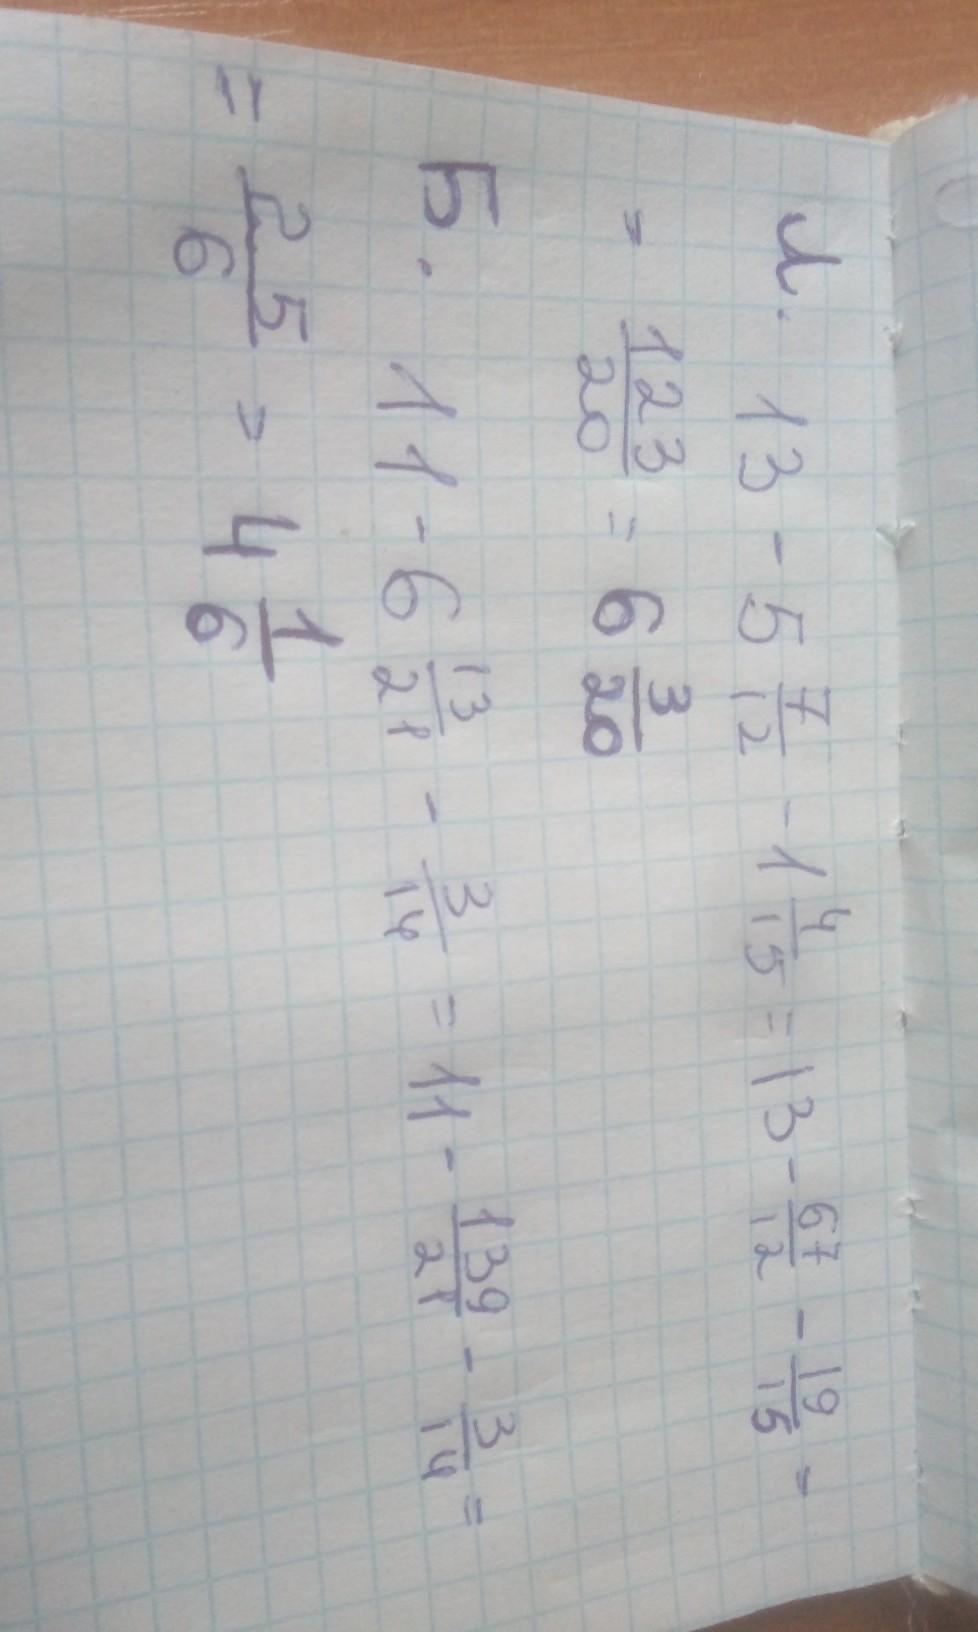 И. 13 - 5 7/12 - 1 4/15 = 13 - 67/12 - 19/15 =
= 123/20 = 6 3/20
Б. 11 - 6 13/21 - 3/14 = 11 - 139/21 - 3/14 =
= 25/6 = 4 1/6